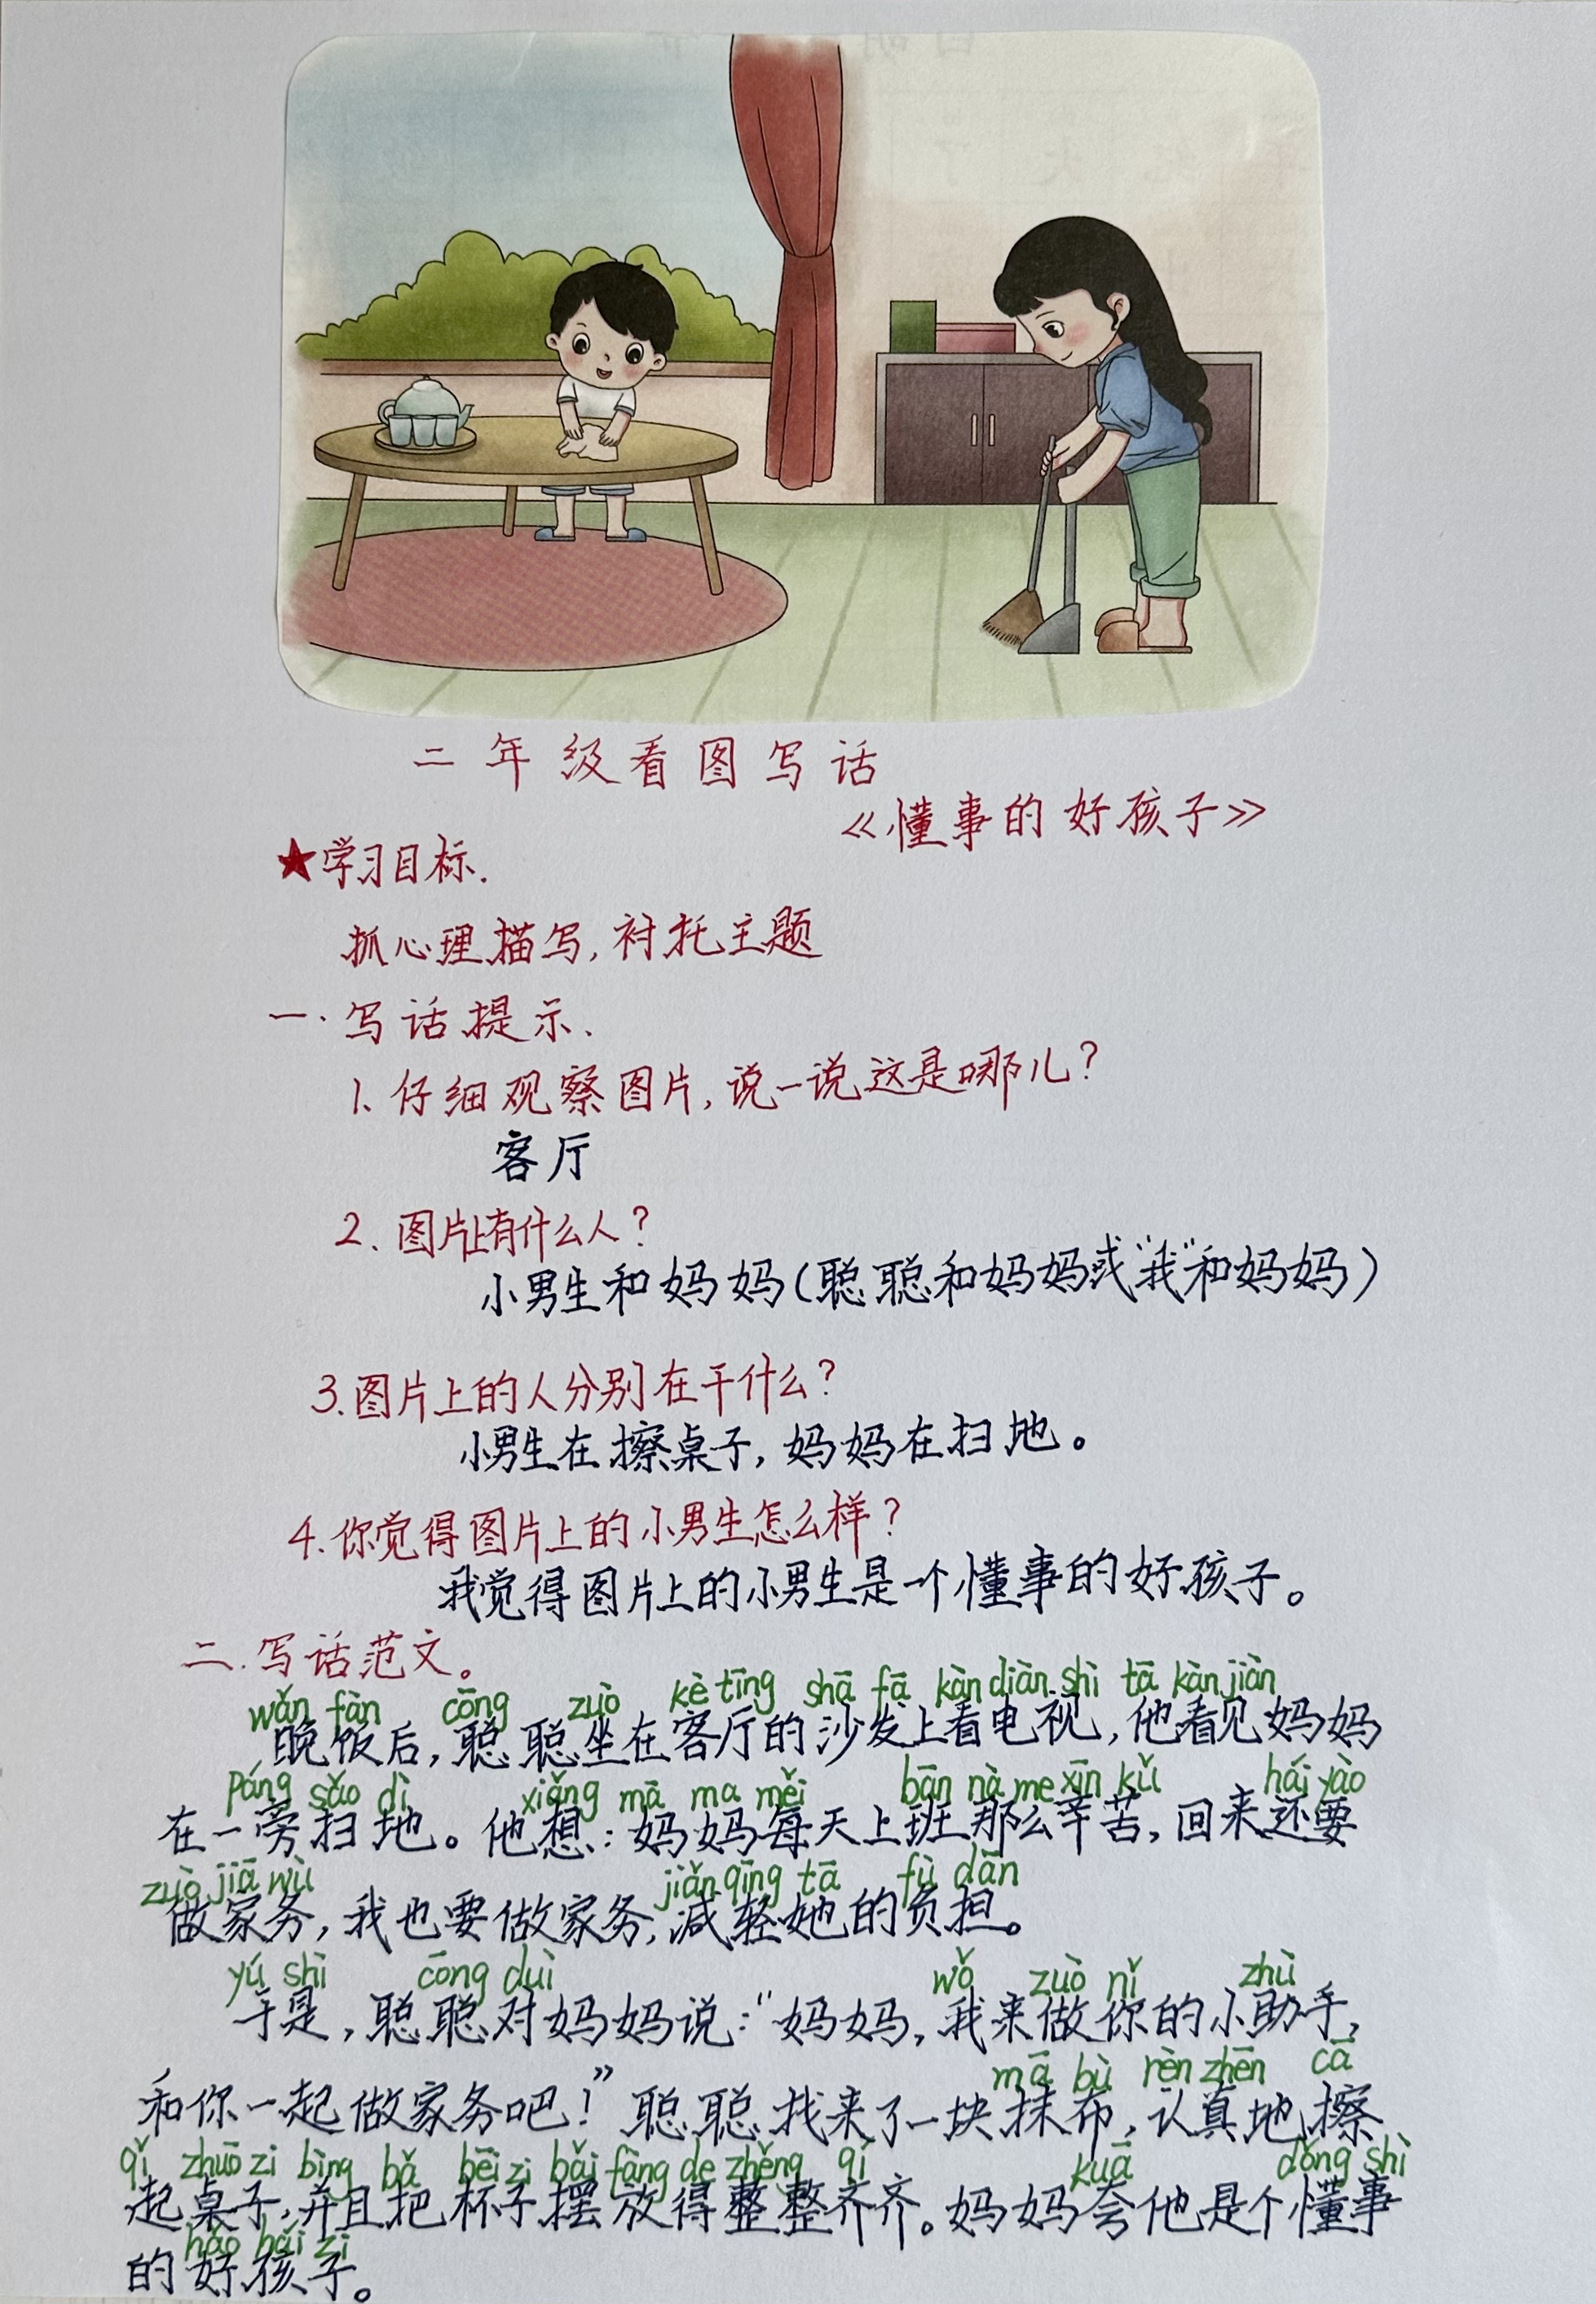 二年级看图写话
《懂事的好孩子》
★学习目标.
抓心理描写,衬托主题
一.写话提示.
1.仔细观察图片,说一说这是哪儿?
客厅
2.图片上有什么人?
小男生和妈妈(聪聪和妈妈或"我"和妈妈)
3.图片上的人分别在干什么?
小男生在擦桌子,妈妈在扫地。
4.你觉得图片上的小男生怎么样?
我觉得图片上的小男生是一个懂事的好孩子。
二.写话范文。
wǎn fàn cōng zuò kè tīng shā fā kàn diàn shì tā kàn jiàn
晚饭后,聪聪坐在客厅的沙发上看电视,他看见妈妈
páng sǎo dì xiǎng mā ma měi bān nà me xīn kǔ hái yào
在一旁扫地。他想:妈妈每天上班那么辛苦,回来还要
zuò jiā wù jiǎn qīng tā fù dān
做家务,我也要做家务,减轻她的负担。
yú shì cōng duì wǒ zuò nǐ zhù
于是,聪聪对妈妈说:"妈妈,我来做你的小助手,
mā bù rèn zhēn cā
和你一起做家务吧!"聪聪找来了一块抹布,认真地擦
qǐ zhuō zi bìng bǎ bēi zi bǎi fàng de zhěng qí kuā dǒng shì
起桌子,并且把杯子摆放得整整齐齐。妈妈夸他是个懂事
hǎo hái zi
的好孩子。